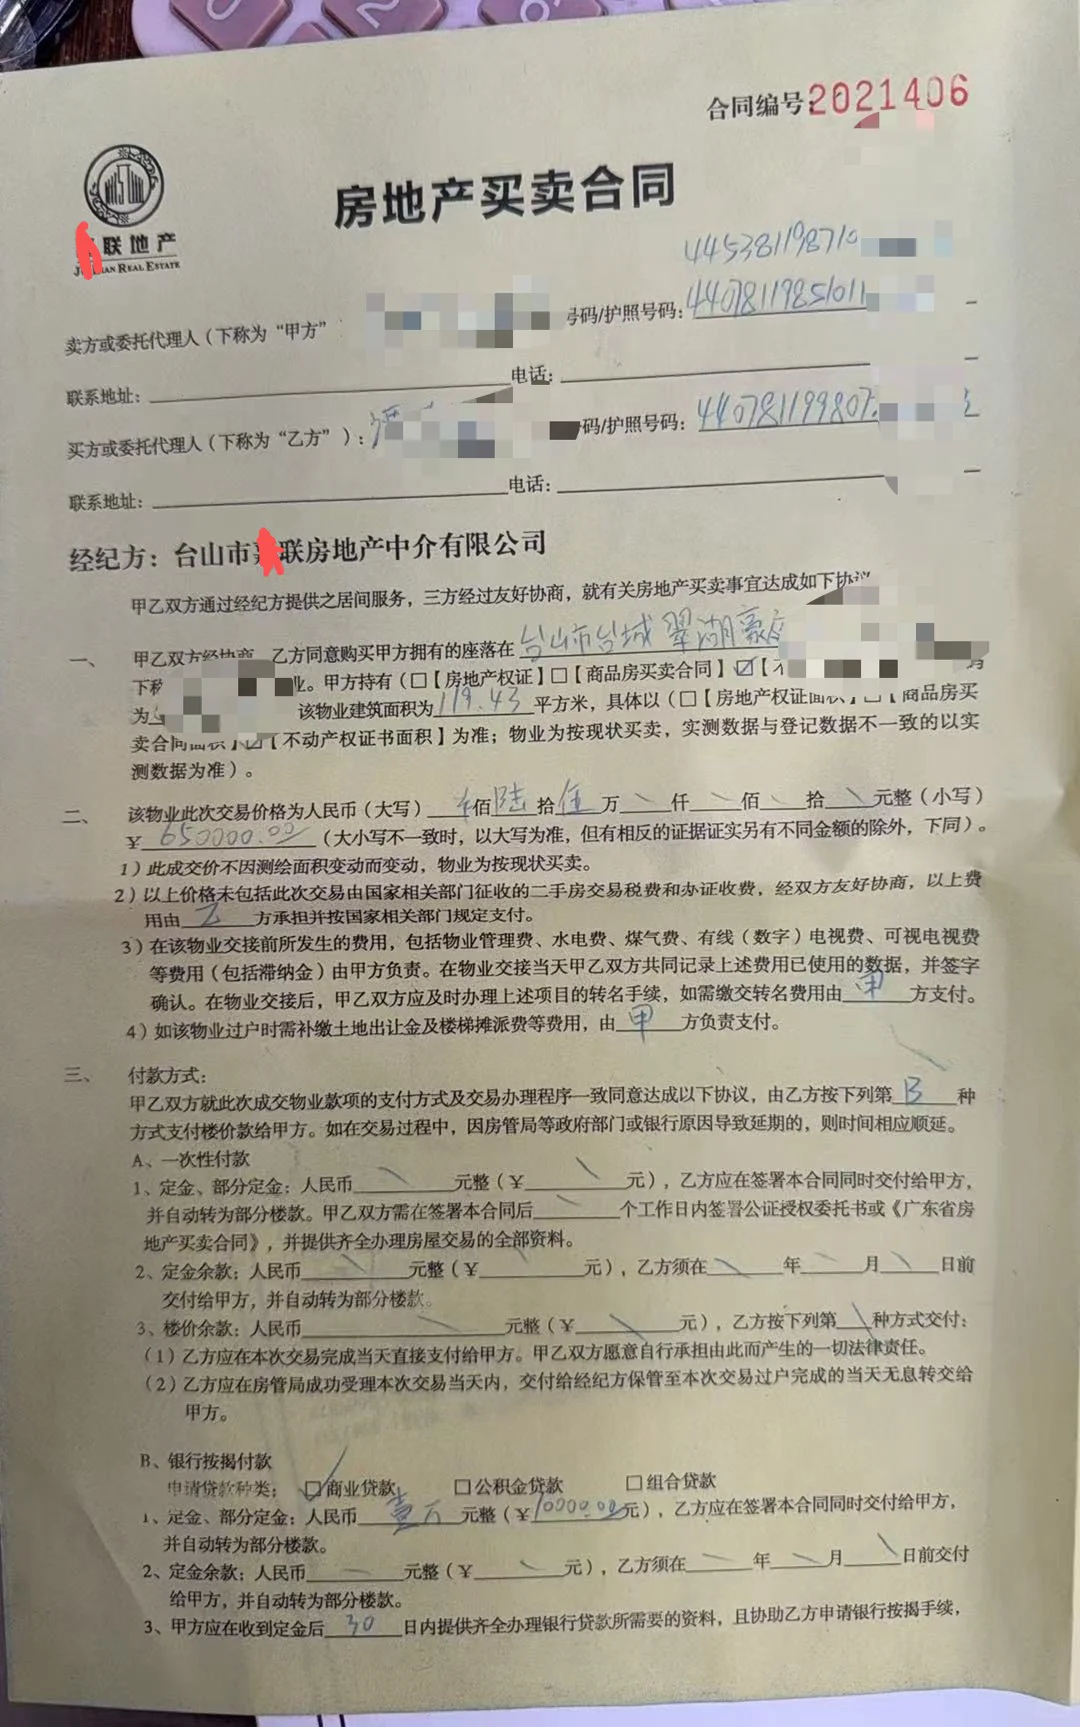 合同编号:2021406
联地产
REAL ESTATE
房地产买卖合同
445381198710
卖方或委托代理人（下称为“甲方” 号码/护照号码: 44078119851011
联系地址: 电话:
买方或委托代理人（下称为“乙方”）: 码/护照号码: 44078119980
联系地址: 电话:
经纪方: 台山市 联房地产中介有限公司
甲乙双方通过经纪方提供之居间服务，三方经过友好协商，就有关房地产买卖事宜达成如下协议
一、 甲乙双方经协商，乙方同意购买甲方拥有的座落在 台山市台城翠湖豪庭
下称 业。甲方持有（□【房地产权证】□【商品房买卖合同】☑【不
为 该物业建筑面积为119.43平方米，具体以（□【房地产权证面积】□【商品房买
卖合同面积】☑【不动产权证书面积】为准；物业为按现状买卖，实测数据与登记数据不一致的以实
测数据为准）。
二、 该物业此次交易价格为人民币（大写） 佰陆拾伍万 仟 佰 拾 元整（小写）
¥ 650000.00 （大小写不一致时，以大写为准，但有相反的证据证实另有不同金额的除外，下同）。
1）此成交价不因测绘面积变动而变动，物业为按现状买卖。
2）以上价格未包括此次交易由国家相关部门征收的二手房交易税费和办证收费，经双方友好协商，以上费
用由 乙 方承担并按国家相关部门规定支付。
3）在该物业交接前所发生的费用，包括物业管理费、水电费、煤气费、有线（数字）电视费、可视电视费
等费用（包括滞纳金）由甲方负责。在物业交接当天甲乙双方共同记录上述费用已使用的数据，并签字
确认。在物业交接后，甲乙双方应及时办理上述项目的转名手续，如需缴交转名费用由 甲 方支付。
4）如该物业过户时需补缴土地出让金及楼梯摊派费等费用，由 甲 方负责支付。
三、 付款方式:
甲乙双方就此次成交物业款项的支付方式及交易办理程序一致同意达成以下协议，由乙方按下列第 B 种
方式支付楼价款给甲方。如在交易过程中，因房管局等政府部门或银行原因导致延期的，则时间相应顺延。
A、一次性付款
1、定金、部分定金: 人民币 元整（¥ 元），乙方应在签署本合同同时交付给甲方，
并自动转为部分楼款。甲乙双方需在签署本合同后 个工作日内签署公证授权委托书或《广东省房
地产买卖合同》，并提供齐全办理房屋交易的全部资料。
2、定金余款: 人民币 元整（¥ 元），乙方须在 年 月 日前
交付给甲方，并自动转为部分楼款。
3、楼价余款: 人民币 元整（¥ 元），乙方按下列第 种方式交付:
（1）乙方应在本次交易完成当天直接支付给甲方。甲乙双方愿意自行承担由此而产生的一切法律责任。
（2）乙方应在房管局成功受理本次交易当天内，交付给经纪方保管至本次交易过户完成的当天无息转交给
甲方。
B、银行按揭付款
申请贷款种类: ☑商业贷款 □公积金贷款 □组合贷款
1、定金、部分定金: 人民币 壹万 元整（¥10000.00元），乙方应在签署本合同同时交付给甲方，
并自动转为部分楼款。
2、定金余款: 人民币 元整（¥ 元），乙方须在 年 月 日前交付
给甲方，并自动转为部分楼款。
3、甲方应在收到定金后 30 日内提供齐全办理银行贷款所需要的资料，且协助乙方申请银行按揭手续，